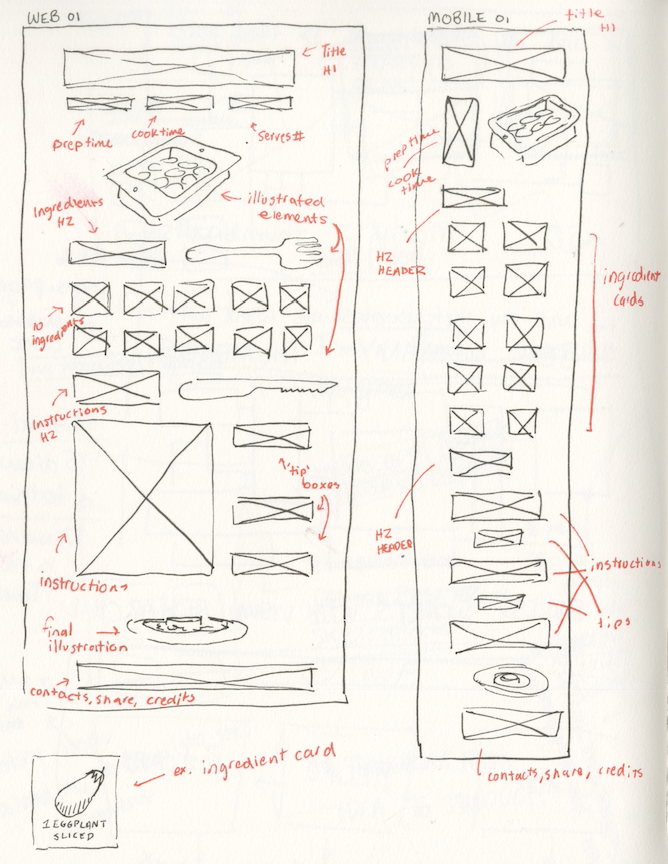 WEB 01
Title
H1
prep time
cook time
Serves #
illustrated
elements
Ingredients
H2
10
ingredients
Instructions
H2
'tip'
boxes
instructions
final
illustration
contacts, share, credits
ex. ingredient card
1 EGGPLANT
SLICED
MOBILE 01
title
H1
prep time
cook
time
H2
HEADER
ingredient
cards
H2
HEADER
instructions
tips
contacts, share, credits